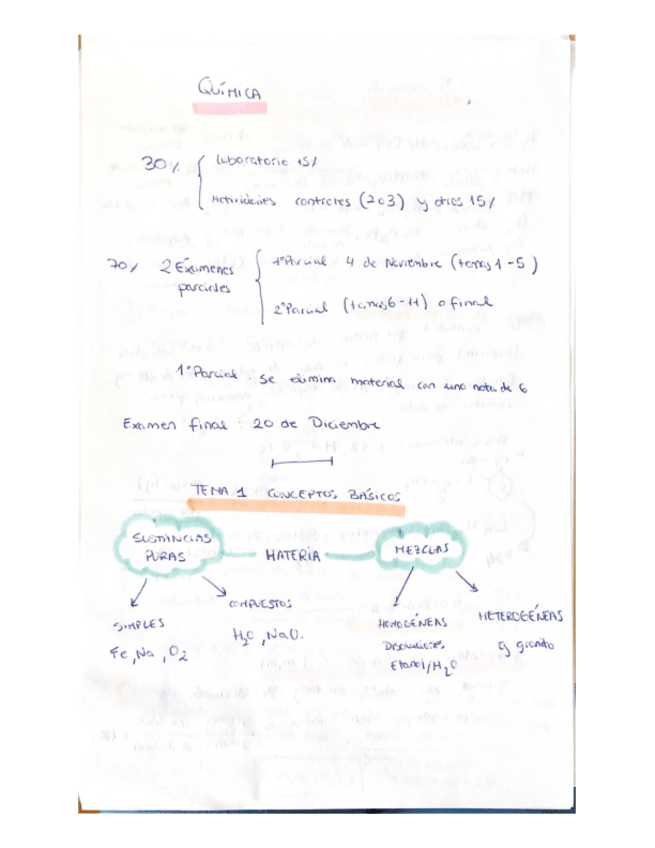 QUÍMICA
30% laboratorio 15%
Actividades controles (2 o 3) y otros 15%
70% 2 Exámenes parciales
1º Parcial 4 de Noviembre (temas 1-5)
2º Parcial (temas 6-11) o final
1º Parcial: se elimina material con una nota de 6
Examen final: 20 de Diciembre
TEMA 1 CONCEPTOS BÁSICOS
SUSTANCIAS PURAS MATERIA MEZCLAS
SIMPLES
Fe, Na, O2
COMPUESTOS
H2O, NaO.
HOMOGÉNEAS
Disoluciones
Etanol/H2O
HETEROGÉNEAS
granito